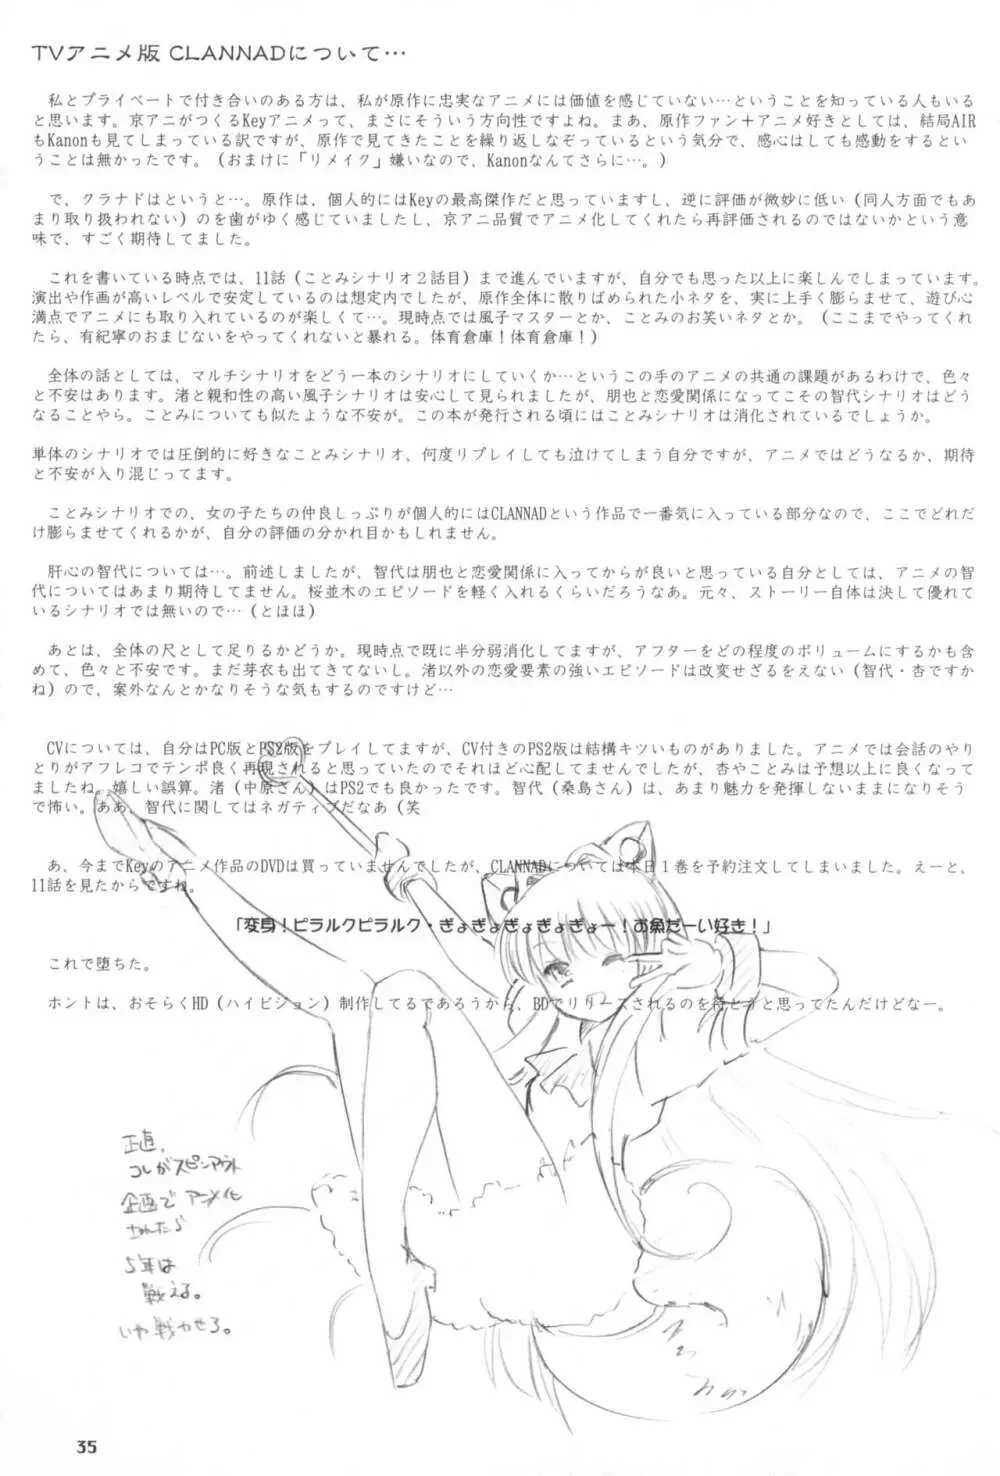 TVアニメ版 CLANNADについて…
私とプライベートで付き合いのある方は、私が原作に忠実なアニメには価値を感じていない…ということを知っている人もいる
と思います。京アニがつくるKeyアニメって、まさにそういう方向性ですよね。まあ、原作ファン＋アニメ好きとしては、結局AIR
もKanonも見てしまっている訳ですが、原作で見てきたことを繰り返しなぞっているという気分で、感心はしても感動をするとい
うことは無かったです。（おまけに「リメイク」嫌いなので、Kanonなんてさらに…。）
で、クラナドはというと…。原作は、個人的にはKeyの最高傑作だと思っていますし、逆に評価が微妙に低い（同人方面でもあ
まり取り扱われない）のを歯がゆく感じていましたし、京アニ品質でアニメ化してくれたら再評価されるのではないかという意
味で、すごく期待してました。
これを書いている時点では、11話（ことみシナリオ２話目）まで進んでいますが、自分でも思った以上に楽しんでしまっています。
演出や作画が高いレベルで安定しているのは想定内でしたが、原作全体に散りばめられた小ネタを、実に上手く膨らませて、遊び心
満点でアニメにも取り入れているのが楽しくて…。現時点では風子マスターとか、ことみのお笑いネタとか。（ここまでやってくれ
たら、有紀寧のおまじないをやってくれないと暴れる。体育倉庫！体育倉庫！）
全体の話としては、マルチシナリオをどう一本のシナリオにしていくか…というこの手のアニメの共通の課題があるわけで、色々
と不安はあります。渚と親和性の高い風子シナリオは安心して見られましたが、朋也と恋愛関係になってこその智代シナリオはどう
なることやら。ことみについても似たような不安が。この本が発行される頃にはことみシナリオは消化されているでしょうか。
単体のシナリオでは圧倒的に好きなことみシナリオ、何度リプレイしても泣けてしまう自分ですが、アニメではどうなるか、期待
と不安が入り混じってます。
ことみシナリオでの、女の子たちの仲良しっぷりが個人的にはCLANNADという作品で一番気に入っている部分なので、ここでどれだ
け膨らませてくれるかが、自分の評価の分かれ目かもしれません。
肝心の智代については…。前述しましたが、智代は朋也と恋愛関係に入ってからが良いと思っている自分としては、アニメの智
代についてはあまり期待してません。桜並木のエピソードを軽く入れるくらいだろうなあ。元々、ストーリー自体は決して優れて
いるシナリオでは無いので…（とほほ）
あとは、全体の尺として足りるかどうか。現時点で既に半分弱消化してますが、アフターをどの程度のボリュームにするかも含
めて、色々と不安です。まだ芽衣も出てきてないし。渚以外の恋愛要素の強いエピソードは改変せざるをえない（智代・杏ですか
ね）ので、案外なんとかなりそうな気もするのですけど…
CVについては、自分はPC版とPS2版をプレイしてますが、CV付きのPS2版は結構キツいものがありました。アニメでは会話のやり
とりがアフレコでテンポ良く再現されると思っていたのでそれほど心配してませんでしたが、杏やことみは予想以上に良くなって
ましたね。嬉しい誤算。渚（中原さん）はPS2でも良かったです。智代（桑島さん）は、あまり魅力を発揮しないままになりそう
で怖い。ああ、智代に関してはネガティブだなあ（笑
あ、今までKeyのアニメ作品のDVDは買っていませんでしたが、CLANNADについては本日１巻を予約注文してしまいました。えーと、
11話を見たからですね。
「変身！ピラルクピラルク・ぎょぎょぎょぎょぎょー！お魚だーい好き！」
これで堕ちた。
ホントは、おそらくHD（ハイビジョン）制作してるであろうから、BDでリリースされるのを待とうと思ってたんだけどなー。
正直、
コレがスピンアウト
企画で アニメ化
されたら
5年は
戦える。
いや戦わせろ。
35